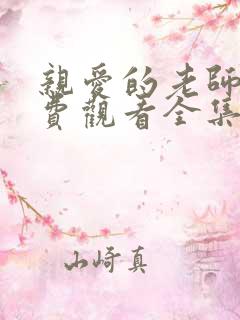 親愛的老師
費觀看全集
山崎真